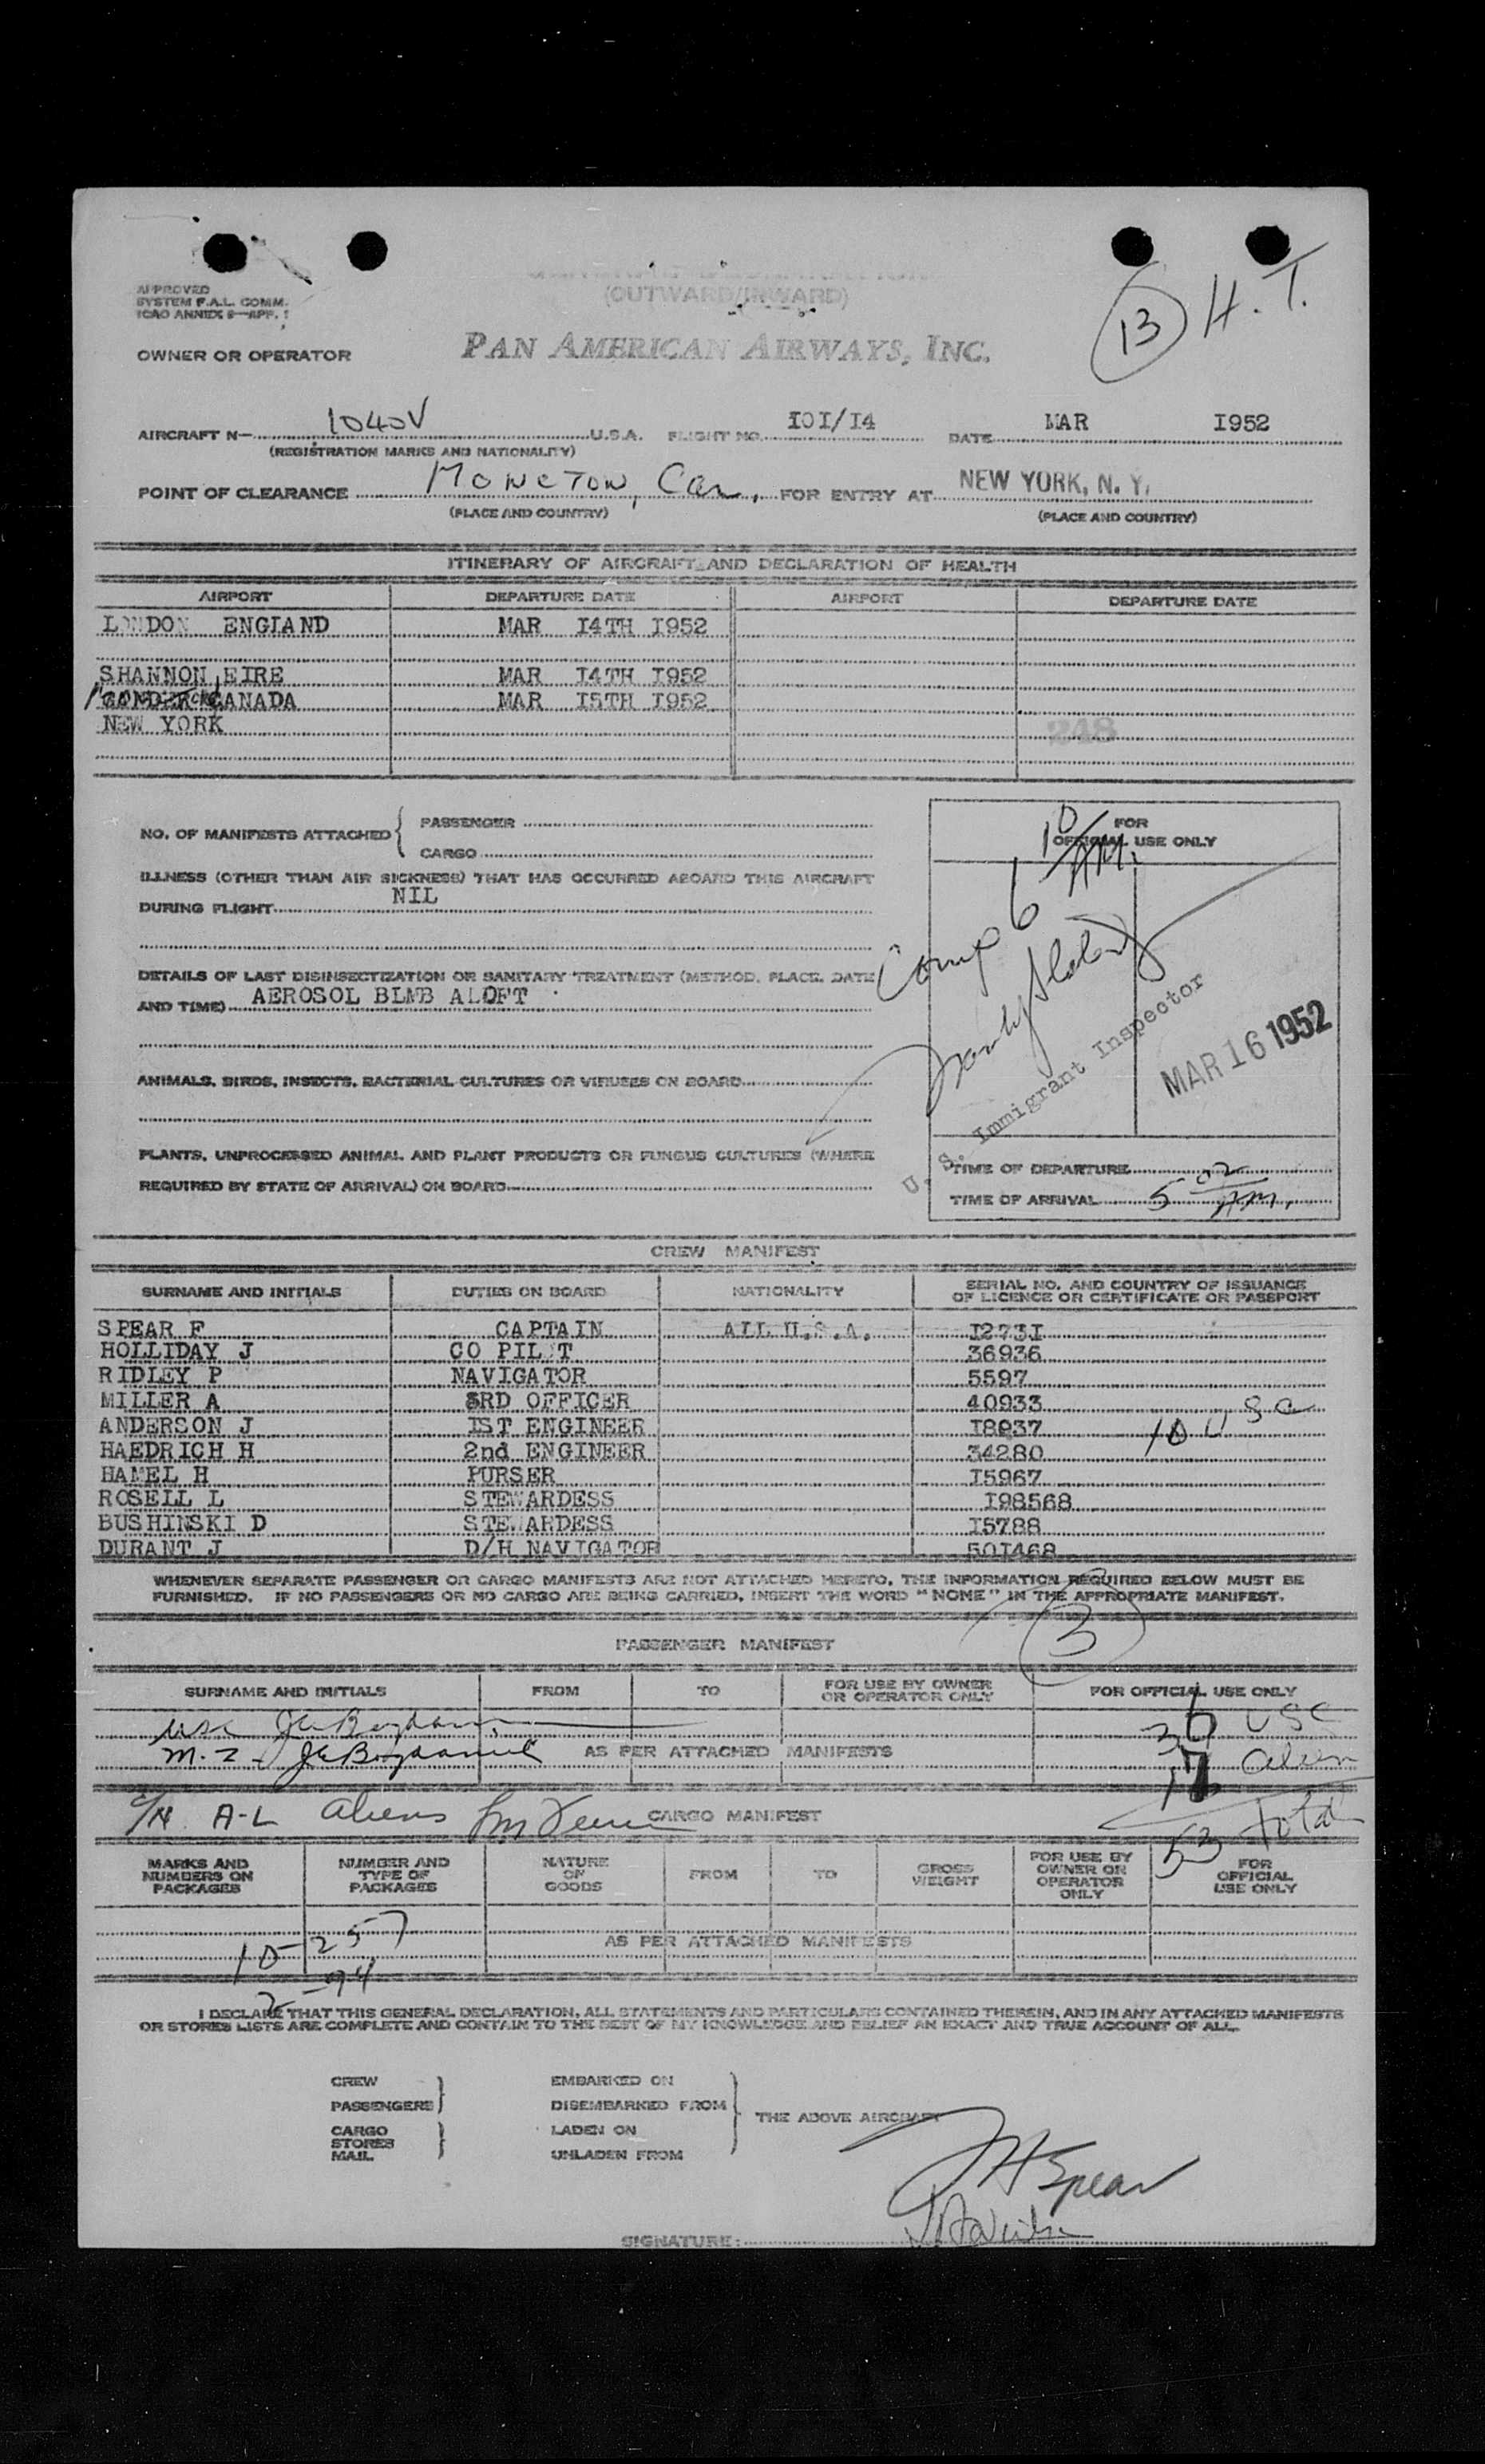 (OUTWARD/INWARD)
APPROVED
SYSTEM F.A.L. COMM.
ICAO ANNEX 9—APP. 1
13 H.T.
OWNER OR OPERATOR PAN AMERICAN AIRWAYS, INC.
AIRCRAFT N— 1040V U.S.A. FLIGHT NO. I0I/I4 DATE MAR I952
(REGISTRATION MARKS AND NATIONALITY)
POINT OF CLEARANCE MONCTON, Can, FOR ENTRY AT NEW YORK, N. Y.
(PLACE AND COUNTRY) (PLACE AND COUNTRY)
ITINERARY OF AIRCRAFT AND DECLARATION OF HEALTH
AIRPORT DEPARTURE DATE AIRPORT DEPARTURE DATE
LONDON ENGLAND MAR I4TH I952
SHANNON EIRE MAR I4TH I952
GANDER CANADA MAR I5TH I952
NEW YORK
248
NO. OF MANIFESTS ATTACHED { PASSENGER
CARGO
FOR
OFFICIAL USE ONLY
ILLNESS (OTHER THAN AIR SICKNESS) THAT HAS OCCURRED ABOARD THIS AIRCRAFT
DURING FLIGHT NIL
Comp 6 10 AM.
DETAILS OF LAST DISINSECTIZATION OR SANITARY TREATMENT (METHOD, PLACE, DATE
AND TIME) AEROSOL BLMB ALOFT
U. S. Immigrant Inspector
MAR 16 1952
ANIMALS, BIRDS, INSECTS, BACTERIAL CULTURES OR VIRUSES ON BOARD
PLANTS, UNPROCESSED ANIMAL AND PLANT PRODUCTS OR FUNGUS CULTURES (WHERE
REQUIRED BY STATE OF ARRIVAL) ON BOARD
TIME OF DEPARTURE
TIME OF ARRIVAL 5 02 AM.
CREW MANIFEST
SURNAME AND INITIALS DUTIES ON BOARD NATIONALITY SERIAL NO. AND COUNTRY OF ISSUANCE
OF LICENCE OR CERTIFICATE OR PASSPORT
SPEAR F CAPTAIN ALL U.S.A. I273I
HOLLIDAY J CO PILOT 36936
RIDLEY P NAVIGATOR 5597
MILLER A 3RD OFFICER 40933
ANDERSON J IST ENGINEER I8937 10 U S C
HAEDRICH H 2nd ENGINEER 34280
HAMEL H PURSER I5967
ROSELL L STEWARDESS I98568
BUSHINSKI D STEWARDESS I5788
DURANT J D/H NAVIGATOR 50I468
WHENEVER SEPARATE PASSENGER OR CARGO MANIFESTS ARE NOT ATTACHED HERETO, THE INFORMATION REQUIRED BELOW MUST BE
FURNISHED. IF NO PASSENGERS OR NO CARGO ARE BEING CARRIED, INSERT THE WORD "NONE" IN THE APPROPRIATE MANIFEST.
3
PASSENGER MANIFEST
SURNAME AND INITIALS FROM TO FOR USE BY OWNER
OR OPERATOR ONLY FOR OFFICIAL USE ONLY
usc 36 USC
M-Z AS PER ATTACHED MANIFESTS 17 alien
A-L aliens CARGO MANIFEST 53 total
MARKS AND
NUMBERS ON
PACKAGES NUMBER AND
TYPE OF
PACKAGES NATURE
OF
GOODS FROM TO GROSS
WEIGHT FOR USE BY
OWNER OR
OPERATOR
ONLY FOR
OFFICIAL
USE ONLY
10-257
AS PER ATTACHED MANIFESTS
2-94
I DECLARE THAT THIS GENERAL DECLARATION, ALL STATEMENTS AND PARTICULARS CONTAINED THEREIN, AND IN ANY ATTACHED MANIFESTS
OR STORES LISTS ARE COMPLETE AND CONTAIN TO THE BEST OF MY KNOWLEDGE AND BELIEF AN EXACT AND TRUE ACCOUNT OF ALL.
CREW EMBARKED ON
PASSENGERS DISEMBARKED FROM THE ABOVE AIRCRAFT
CARGO LADEN ON
STORES
MAIL UNLADEN FROM
Spear
SIGNATURE: